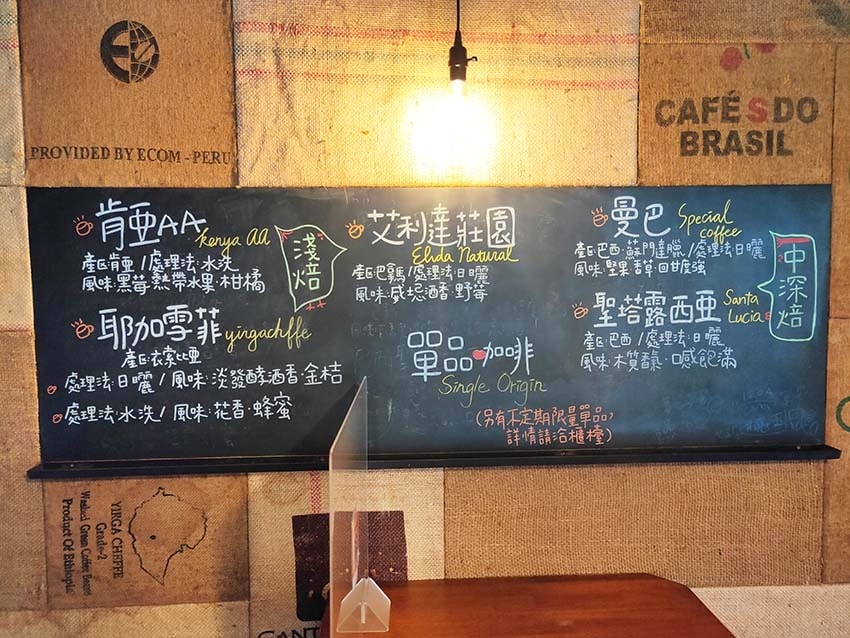 PROVIDED BY ECOM - PERU
CAFÉS DO
BRASIL
肯亞AA
kenya AA
產區:肯亞/處理法:水洗
風味:黑莓·熱帶水果·柑橘
淺焙
耶加雪菲
yirgachffe
產區:衣索比亞
處理法:日曬/風味:淡發酵酒香·金桔
處理法:水洗/風味:花香·蜂蜜
艾利達莊園
Elida Natural
產區:巴拿馬/處理法:日曬
風味:威士忌酒香·野莓
單品咖啡
Single Origin
(另有不定期限量單品,
詳情請洽櫃檯)
曼巴
Special
coffee
產區:巴西·蘇門達臘/處理法:日曬
風味:堅果·香草·回甘度強
中深焙
聖塔露西亞
Santa
Lucia
產區:巴西/處理法:日曬
風味:木質香氣·口感飽滿
YIRGA CHEFFE
Grade-2
Washed Green Coffee Beans
Product Of Ethiopia